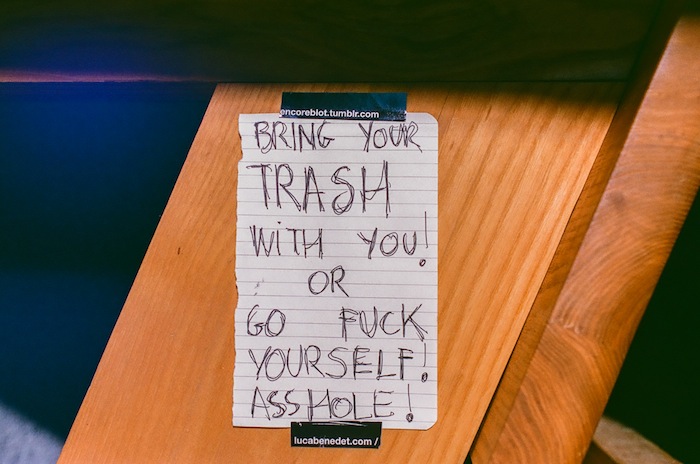 encoreblot.tumblr.com
BRING YOUR
TRASH
WITH YOU!
OR
GO FUCK
YOURSELF!
ASSHOLE!
lucabenedet.com/